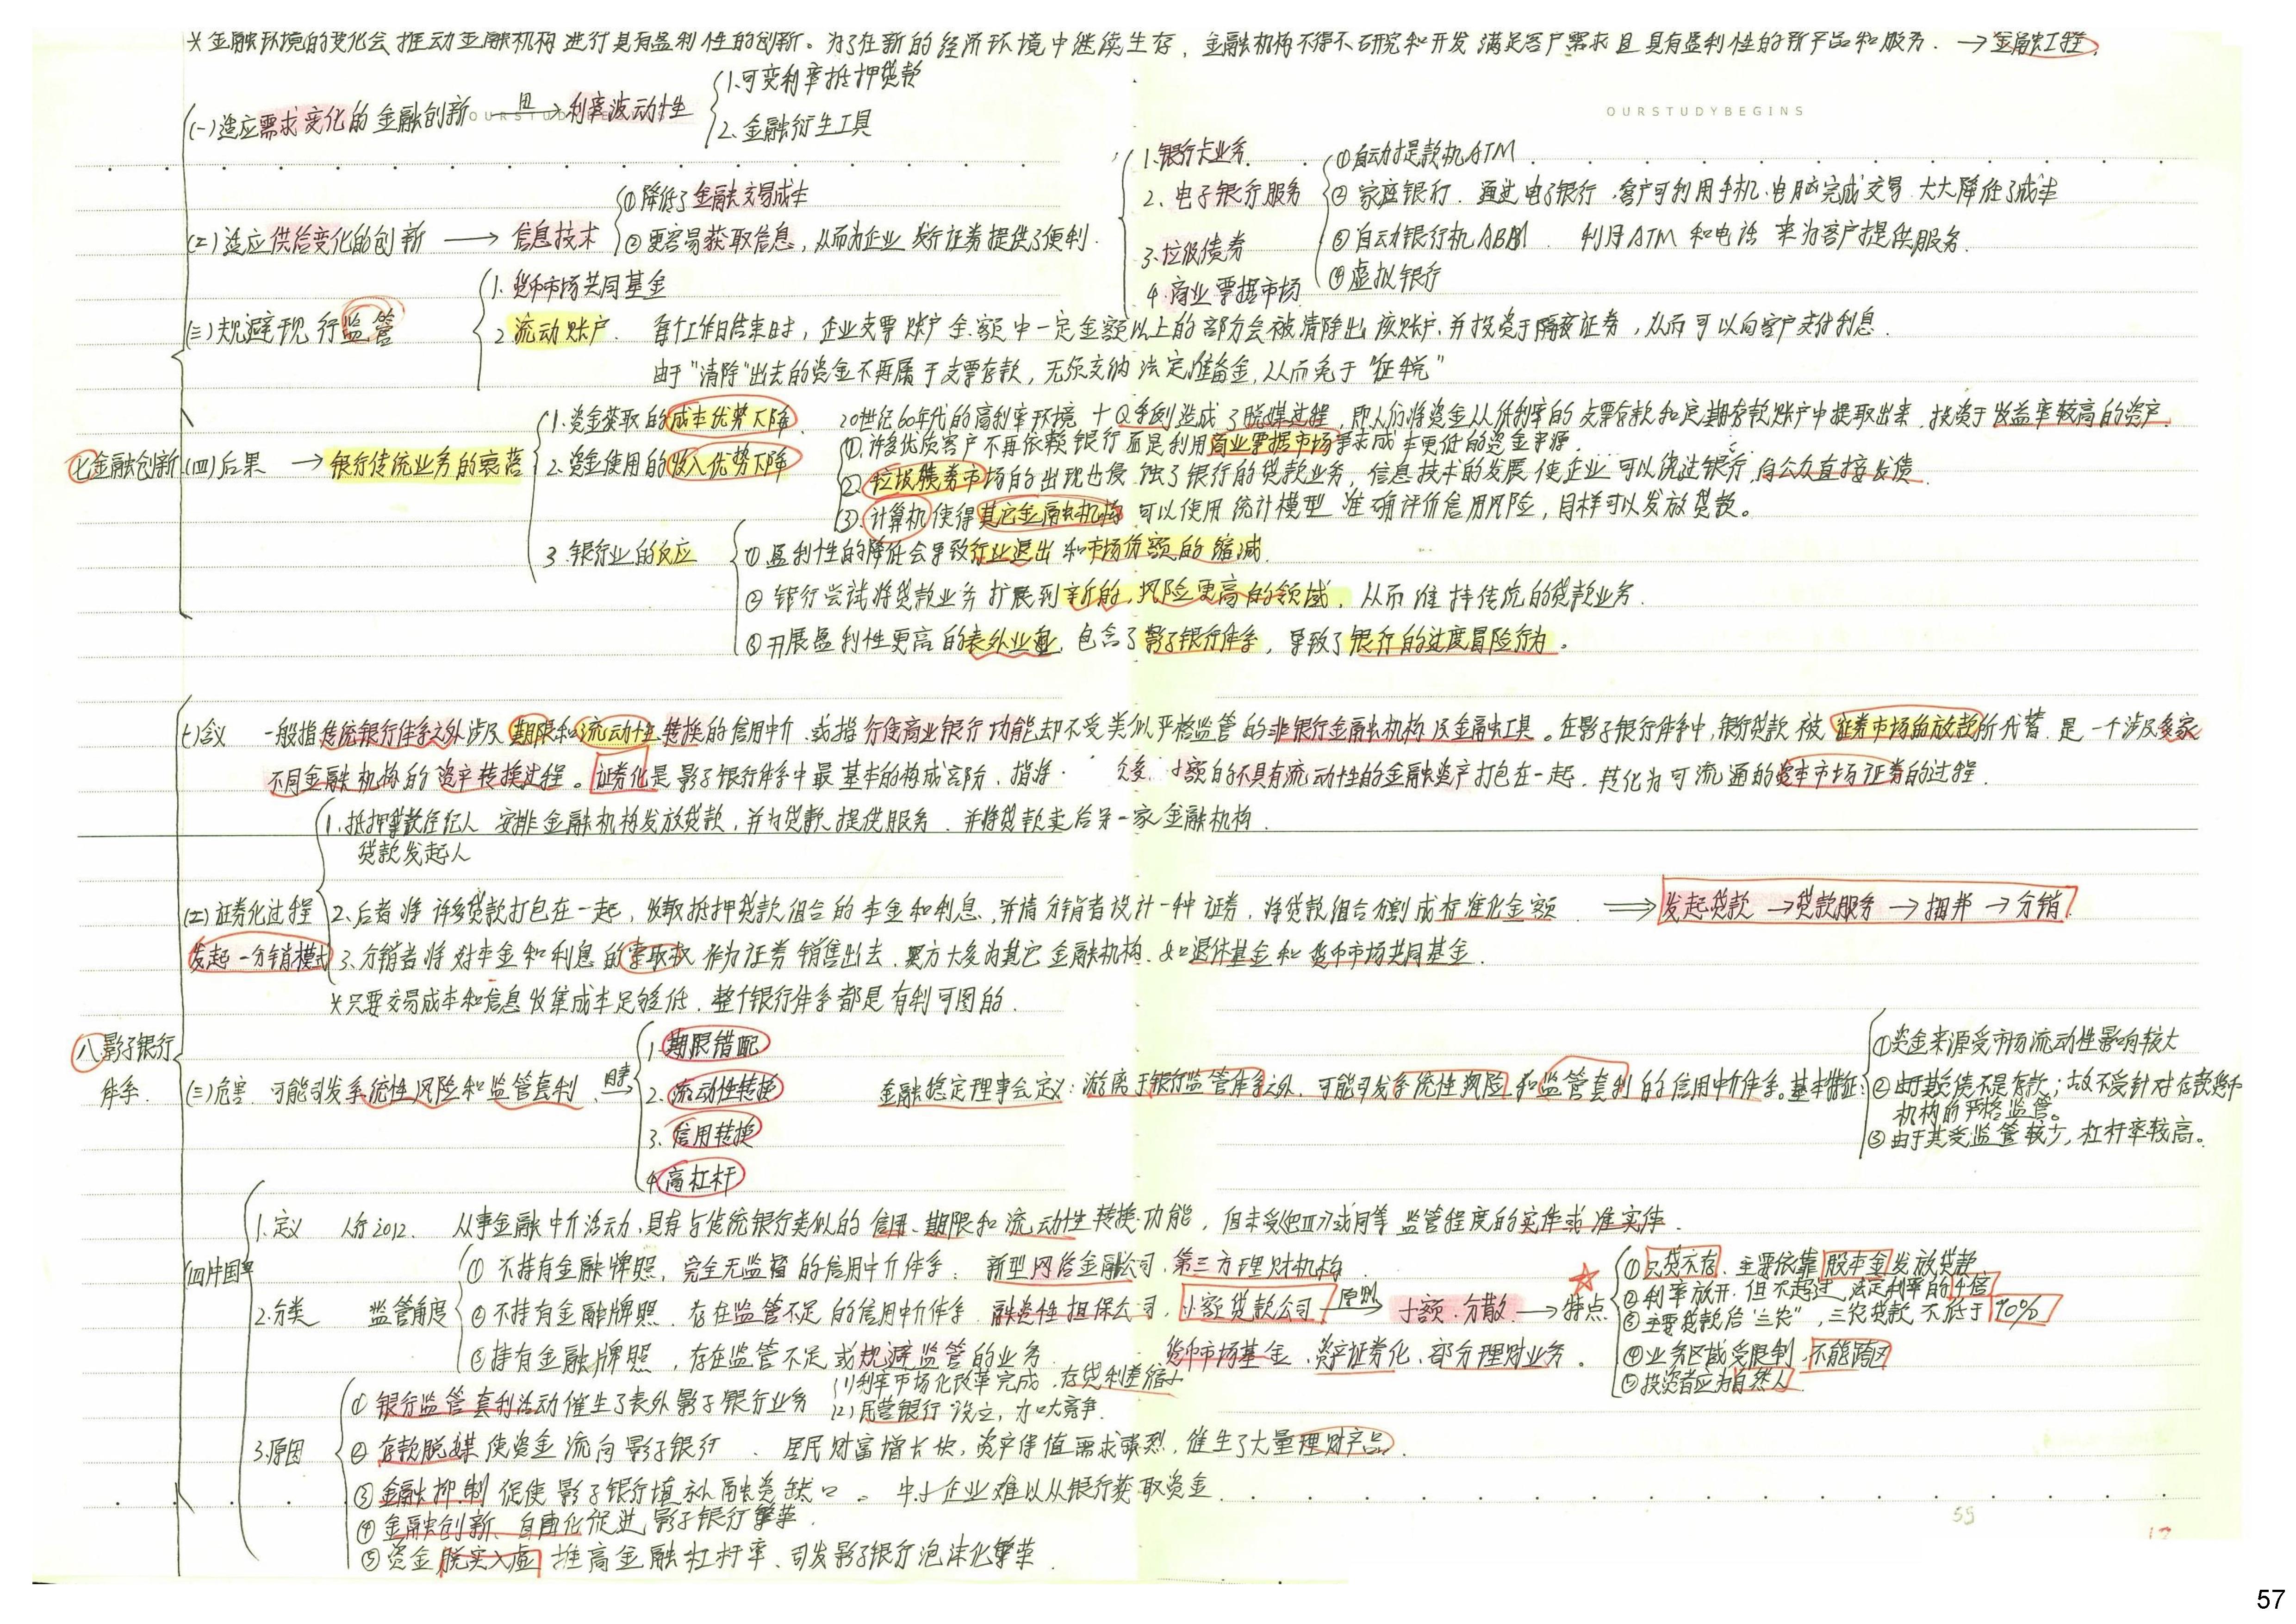 *金融环境的变化会推动金融机构进行具有盈利性的创新。为了在新的经济环境中继续生存，金融机构不得不研究和开发满足客户需求且具有盈利性的新产品和服务. →金融工程.
OURSTUDYBEGINS
七金融创新
(一)适应需求变化的金融创新 因→ 利率波动性
1.可变利率抵押贷款
2.金融衍生工具
(二)适应供给变化的创新 → 信息技术
①降低了金融交易成本
②更容易获取信息，从而为企业发行证券提供了便利.
1.银行卡业务.
2.电子银行服务
①自动提款机ATM
②家庭银行. 通过电子银行,客户可利用手机、电脑完成交易.大大降低了成本
③自动银行机ABM. 利用ATM和电话来为客户提供服务.
④虚拟银行
3.垃圾债券
4.商业票据市场
(三)规避现行监管
1.货币市场共同基金
2.流动账户. 每个工作日结束时，企业支票账户余额中一定金额以上的部分会被清除出该账户,并投资于隔夜证券，从而可以向客户支付利息.
由于"清除"出去的资金不再属于支票存款，无须交纳法定准备金,从而免于"征税"
(四)后果 → 银行传统业务的衰落
1.资金获取的成本优势下降. 20世纪60年代的高利率环境+Q条例造成了脱媒过程，即人们将资金从低利率的支票存款和定期存款账户中提取出来，投资于收益率较高的资产.
2.资金使用的收入优势下降
①.许多优质客户不再依赖银行而是利用商业票据市场寻求成本更低的资金来源.
②.垃圾债券市场的出现也侵蚀了银行的贷款业务，信息技术的发展使企业可以绕过银行,向公众直接发债.
③.计算机使得其它金融机构可以使用统计模型准确评价信用风险，同样可以发放贷款。
3.银行业的反应
①盈利性的降低会导致行业退出和市场份额的缩减.
②银行尝试将贷款业务扩展到新的,风险更高的领域，从而维持传统的贷款业务.
③开展盈利性更高的表外业务,包含了影子银行体系，导致了银行的过度冒险行为。
八.影子银行体系.
(一)含义 一般指传统银行体系之外涉及期限和流动性转换的信用中介.或指行使商业银行功能却不受类似严格监管的非银行金融机构及金融工具。在影子银行体系中,银行贷款被证券市场的放款所代替.是一个涉及多家
不同金融机构的资产转换过程。证券化是影子银行体系中最基本的构成部分，指将 众多、小额的不具有流动性的金融资产打包在一起，转化为可流通的资本市场证券的过程.
(二)证券化过程
发起-分销模式
1.抵押贷款经纪人 安排金融机构发放贷款,并为贷款提供服务.并将贷款卖给另一家金融机构.
贷款发起人
2.后者将许多贷款打包在一起，收取抵押贷款组合的本金和利息,并请分销者设计一种证券，将贷款组合分割成标准化金额 ⇒ 发起贷款→贷款服务→捆绑→分销
3.分销者将对本金和利息的索取权作为证券销售出去.买方大多为其它金融机构、如退休基金和货币市场共同基金.
*只要交易成本和信息收集成本足够低.整个银行体系都是有利可图的.
(三)危害 可能引发系统性风险和监管套利.
1.期限错配
2.流动性转换
3.信用转换
4.高杠杆
金融稳定理事会定义：游离于银行监管体系之外、可能引发系统性风险和监管套利的信用中介体系。基本特征:
①资金来源受市场流动性影响较大
②由于其负债不是存款；故不受针对存款货币机构的严格监管。
③由于其受监管较少，杠杆率较高。
(四)中国
1.定义 人行2012. 从事金融中介活动,具有与传统银行类似的信用、期限和流动性转换功能，但未受《巴III》或同等监管程度的实体或准实体.
2.分类 监管角度
①不持有金融牌照，完全无监督的信用中介体系： 新型网络金融公司、第三方理财机构
②不持有金融牌照.存在监管不足的信用中介体系.融资性担保公司,小额贷款公司 原则→ 小额.分散 → 特点
③持有金融牌照，存在监管不足或规避监管的业务. 货币市场基金、资产证券化、部分理财业务。
☆
①只贷不存、主要依靠股本金发放贷款.
②利率放开.但不超过法定利率的4倍
③主要贷款给"三农"，三农贷款不低于70%
④业务区域受限制、不能跨区
⑤投资者应为自然人.
3.原因
①银行监管套利活动催生了表外影子银行业务
(1)利率市场化改革完成.存贷利差缩小
(2)民营银行设立,加大竞争.
②存款脱媒使资金流向影子银行. 居民财富增长快，资产保值需求强烈，催生了大量理财产品.
③金融抑制促使影子银行填补融资缺口。 中小企业难以从银行获取资金.
④金融创新、自由化促进影子银行繁荣.
⑤资金脱实入虚推高金融杠杆率、引发影子银行泡沫化繁荣.
59
57